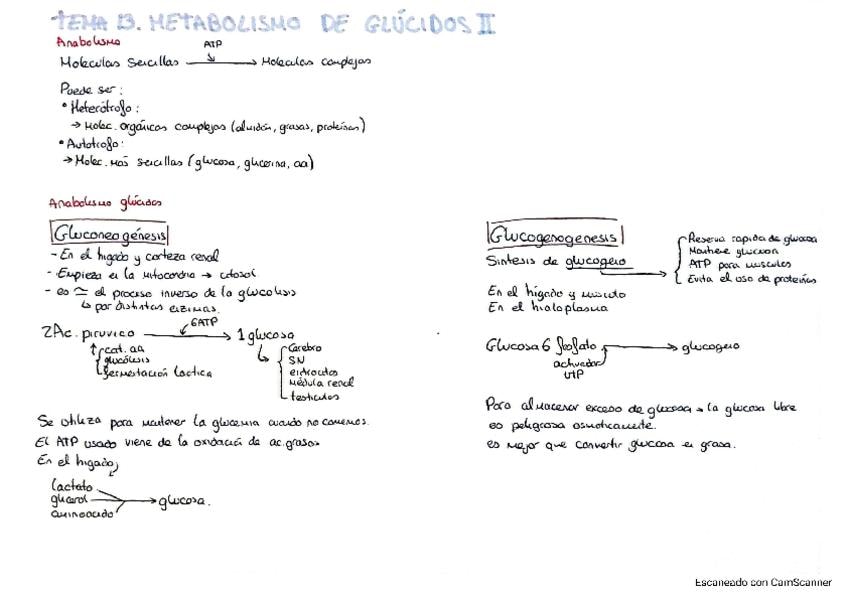 TEMA 13. METABOLISMO DE GLÚCIDOS II
Anabolismo
ATP
Moleculas Sencillas → Moleculas complejas
Puede ser:
• Heterótrofo:
→ Molec. orgánicas complejas (almidón, grasas, proteínas)
• Autótrofo:
→ Molec. más sencillas (glucosa, glicerina, aa)
Anabolismo glúcidos
Gluconeogénesis
- En el hígado y corteza renal
- Empieza en la mitocondria → citosol
- es ≃ el proceso inverso de la glucolisis
↳ por distintas enzimas.
6ATP
2Ac. piruvico → 1 glucosa
cat. aa
glucólisis
fermentación láctica
Cerebro
SN
eritrocitos
Médula renal
testiculos
Se utiliza para mantener la glucemia cuando no comemos.
El ATP usado viene de la oxidación de ac. grasos
En el hígado,
lactato
glicerol
aminoacido
→ glucosa.
Glucogenogenesis
Sintesis de glucogeno
Reserva rapida de glucosa
Mantiene glucemia
ATP para musculos
Evita el uso de proteínas
En el hígado y musculo
En el hialoplasma
Glucosa 6 fosfato → glucogeno
activador
UTP
Para almacenar exceso de glucosa → la glucosa libre
es peligrosa osmoticamente.
es mejor que convertir glucosa en grasa.
Escaneado con CamScanner